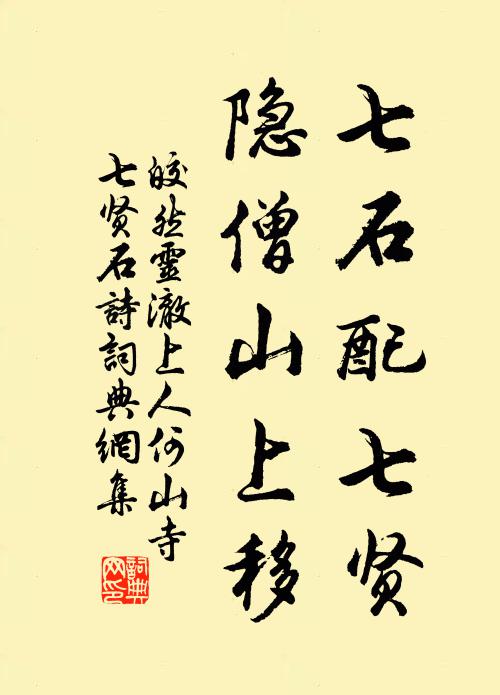 七石配七贤
隐僧山上移
皎然靈澈上人何山寺
七贤石詩詞典網集
詞典
网印